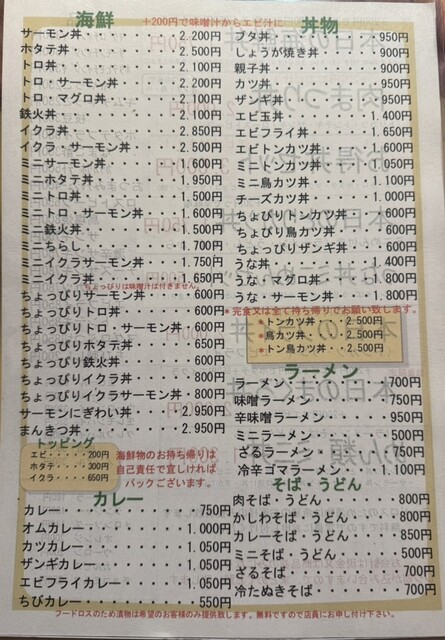 海鮮
+200円で味噌汁からエビ汁に
サーモン丼・・・・・・・2.200円
ホタテ丼・・・・・・・・2.500円
トロ丼・・・・・・・・・2.100円
トロ・サーモン丼・・・・2.200円
トロ・マグロ丼・・・・・2.100円
鉄火丼・・・・・・・・・2.100円
イクラ丼・・・・・・・・2.850円
イクラ・サーモン丼・・・2.500円
ミニサーモン丼・・・・・1.600円
ミニホタテ丼・・・・・・1.950円
ミニトロ丼・・・・・・・1.500円
ミニトロ・サーモン丼・・1.600円
ミニ鉄火丼・・・・・・・1.500円
ミニちらし・・・・・・・1.700円
ミニイクラサーモン丼・・1.750円
ミニイクラ丼・・・・・・1.650円
ちょっぴりは味噌汁は付きません。
ちょっぴりサーモン丼・・・600円
ちょっぴりトロ丼・・・・・600円
ちょっぴりトロ・サーモン丼・600円
ちょっぴりホタテ丼・・・・650円
ちょっぴり鉄火丼・・・・・600円
ちょっぴりイクラ丼・・・・800円
ちょっぴりイクラサーモン丼・800円
サーモンにぎわい丼・・・2.950円
まんきつ丼・・・・・・・2.950円
トッピング
エビ・・・・・200円
ホタテ・・・・300円
イクラ・・・・650円
海鮮物のお持ち帰りは
自己責任で宜しければ
パックございます。
カレー
カレー・・・・・・・・・・750円
オムカレー・・・・・・・1.000円
カツカレー・・・・・・・1.050円
ザンギカレー・・・・・・1.050円
エビフライカレー・・・・1.050円
ちびカレー・・・・・・・・550円
丼物
ブタ丼・・・・・・・・・・950円
しょうが焼き丼・・・・・・900円
親子丼・・・・・・・・・・900円
カツ丼・・・・・・・・・・950円
ザンギ丼・・・・・・・・・950円
エビ玉丼・・・・・・・・1.400円
エビフライ丼・・・・・・1.650円
エビトンカツ丼・・・・・・600円
ミニトンカツ丼・・・・・1.050円
ミニ鳥カツ丼・・・・・・1.100円
チーズカツ丼・・・・・・1.000円
ちょぴりトンカツ丼・・・・600円
ちょぴり鳥カツ丼・・・・・600円
ちょっぴりザンギ丼・・・・600円
うな丼・・・・・・・・・1.400円
うな・マグロ丼・・・・・1.800円
うな・サーモン丼・・・・1.800円
*完食又は全て持ち帰りでお願い致します。
*トンカツ丼・・・2.500円
*鳥カツ丼・・・・2.500円
*トン鳥カツ丼・・2.500円
ラーメン
ラーメン・・・・・・・・・700円
味噌ラーメン・・・・・・・750円
辛味噌ラーメン・・・・・・950円
ミニラーメン・・・・・・・500円
ざるラーメン・・・・・・・750円
冷辛ゴマラーメン・・・・1.100円
そば・うどん
肉そば・うどん・・・・・・800円
かしわそば・うどん・・・・800円
カレーそば・うどん・・・・850円
ミニそば・うどん・・・・・500円
ざるそば・・・・・・・・・700円
冷たぬきそば・・・・・・・700円
フードロスのため漬物は希望のお客様のみ提供致します。無料ですので店員にお申し付け下さい。